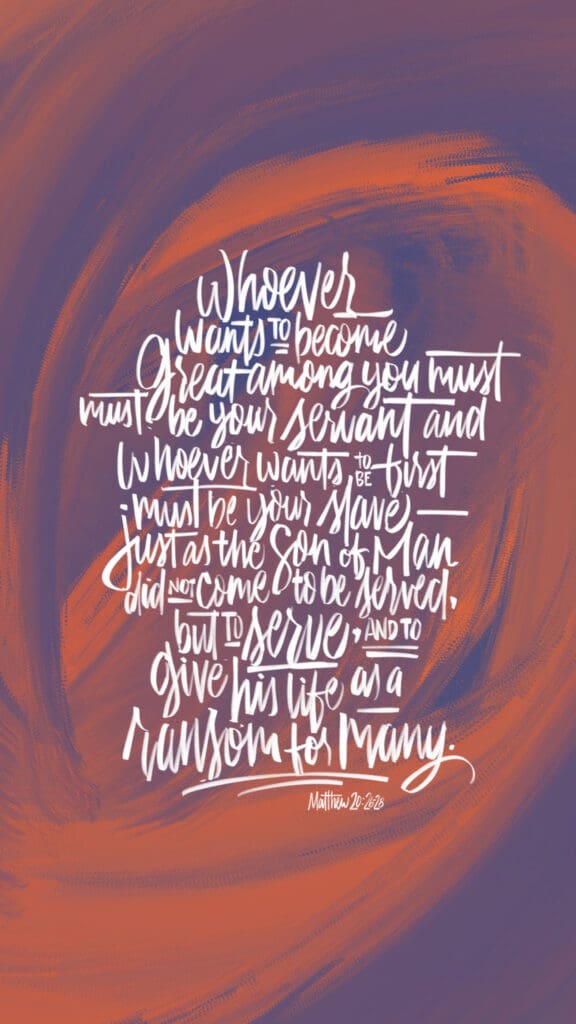 Whoever
wants TO become
great among you must
must be your servant and
whoever wants TO BE first
must be your slave —
just as the Son of Man
did NOT come to be served,
but TO serve, AND TO
give his life as a
ransom for many.
Matthew 20:26-28